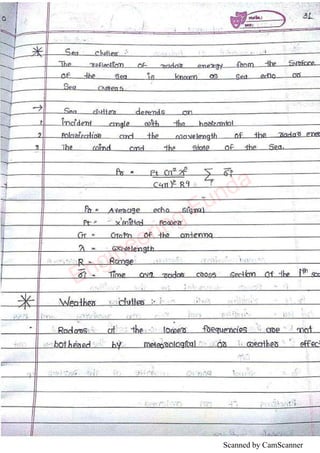 31
* Sea clutter :-
The reflection of radar energy from the surface
of the sea is known as sea echo or
sea clutters.
→ Sea clutter depends on
1 incident angle with the horizontal
2 Polarization and the wavelength of the radar ener
3 The wind and the state of the sea.
Pr = Pt G² λ² / (4π)³ R⁴ Σ σi
Pr = Average echo signal
Pt = X'mitted power
G = Gain of the antenna
λ = wavelength
R = Range
σi = Time avg radar cross section of the 1th sca
* Weather clutter :-
Radars at the lower frequencies are not
bothered by meteorological or weather effec
Engineering Funda
Scanned by CamScanner